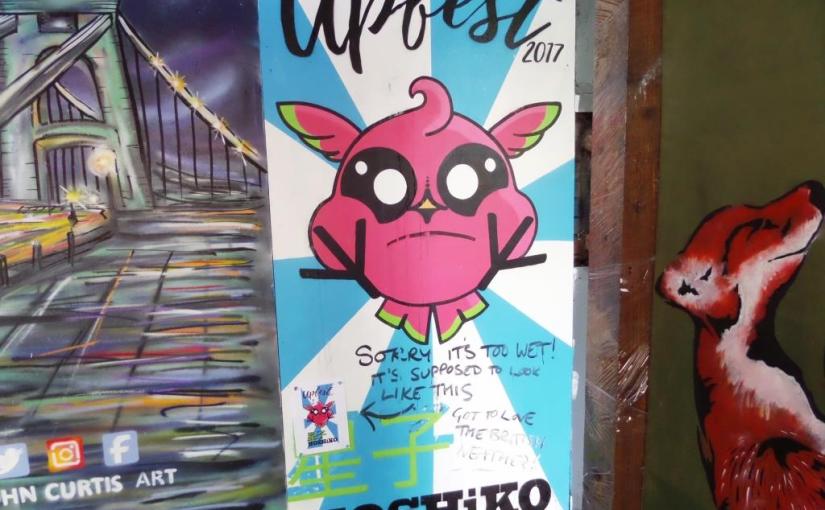 Upfest
2017
SORRY IT'S TOO WET!
IT'S SUPPOSED TO LOOK
LIKE THIS
GOT TO LOVE
THE BRITISH
WEATHER!
Upfest
HOSHiKO
星子
HOSHiKO
OHN CURTIS ART